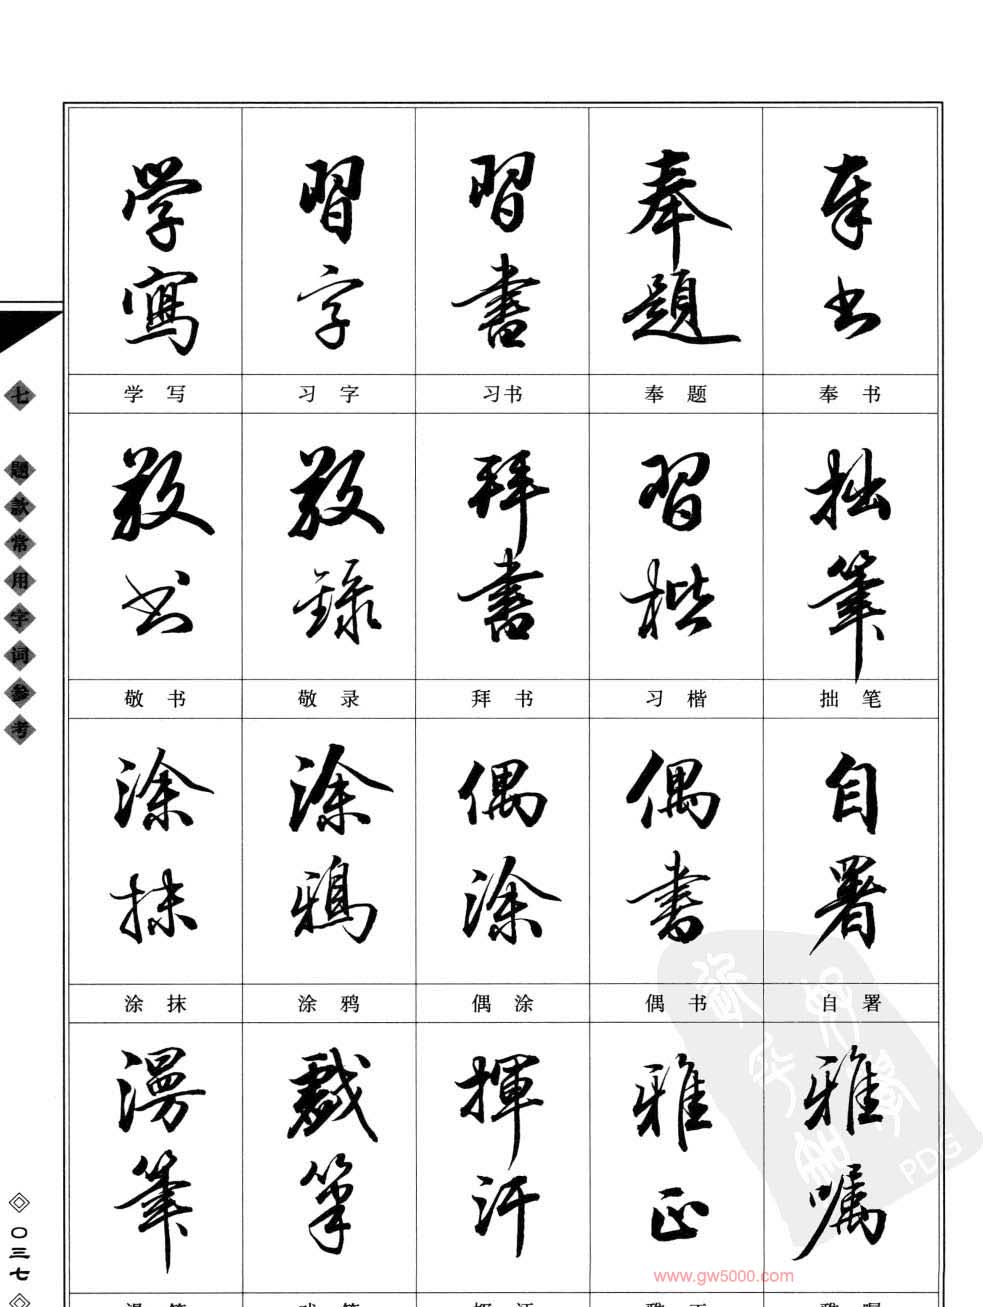 学寫 習字 習書 奉題 奉书
学 写 习 字 习书 奉 题 奉 书
敬书 敬録 拜書 習楷 拙筆
敬 书 敬 录 拜 书 习 楷 拙 笔
涂抹 涂鴉 偶涂 偶書 自署
涂 抹 涂 鸦 偶 涂 偶 书 自 署
漫筆 戲筆 揮汗 雅正 雅嘱
七 题款常用字词参考
〇三七
PDG
www.gw5000.com